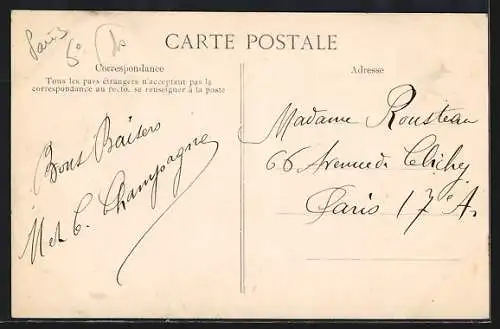 Paris
CARTE POSTALE
Correspondance
Tous les pays étrangers n'acceptant pas la
correspondance au recto, se renseigner à la poste
Bons Baisers
M et C. Champagne
Adresse
Madame Rousteau
66 Avenue de Clichy
Paris 17e A.